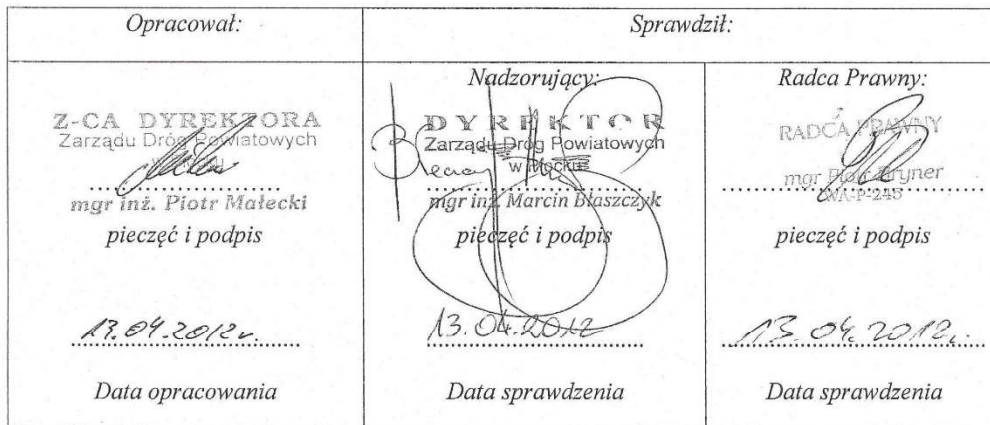 Opracował:
Sprawdził:
Z-CA DYREKTORA
Zarządu Dróg Powiatowych
mgr inż. Piotr Małecki
pieczęć i podpis
13.04.2012r.
Data opracowania
Nadzorujący:
DYREKTOR
Zarządu Dróg Powiatowych
w Płocku
mgr inż. Marcin Błaszczyk
pieczęć i podpis
13.04.2012
Data sprawdzenia
Radca Prawny:
RADCA PRAWNY
mgr Piotr Bryner
WA-P-245
pieczęć i podpis
13.04.2012r.
Data sprawdzenia